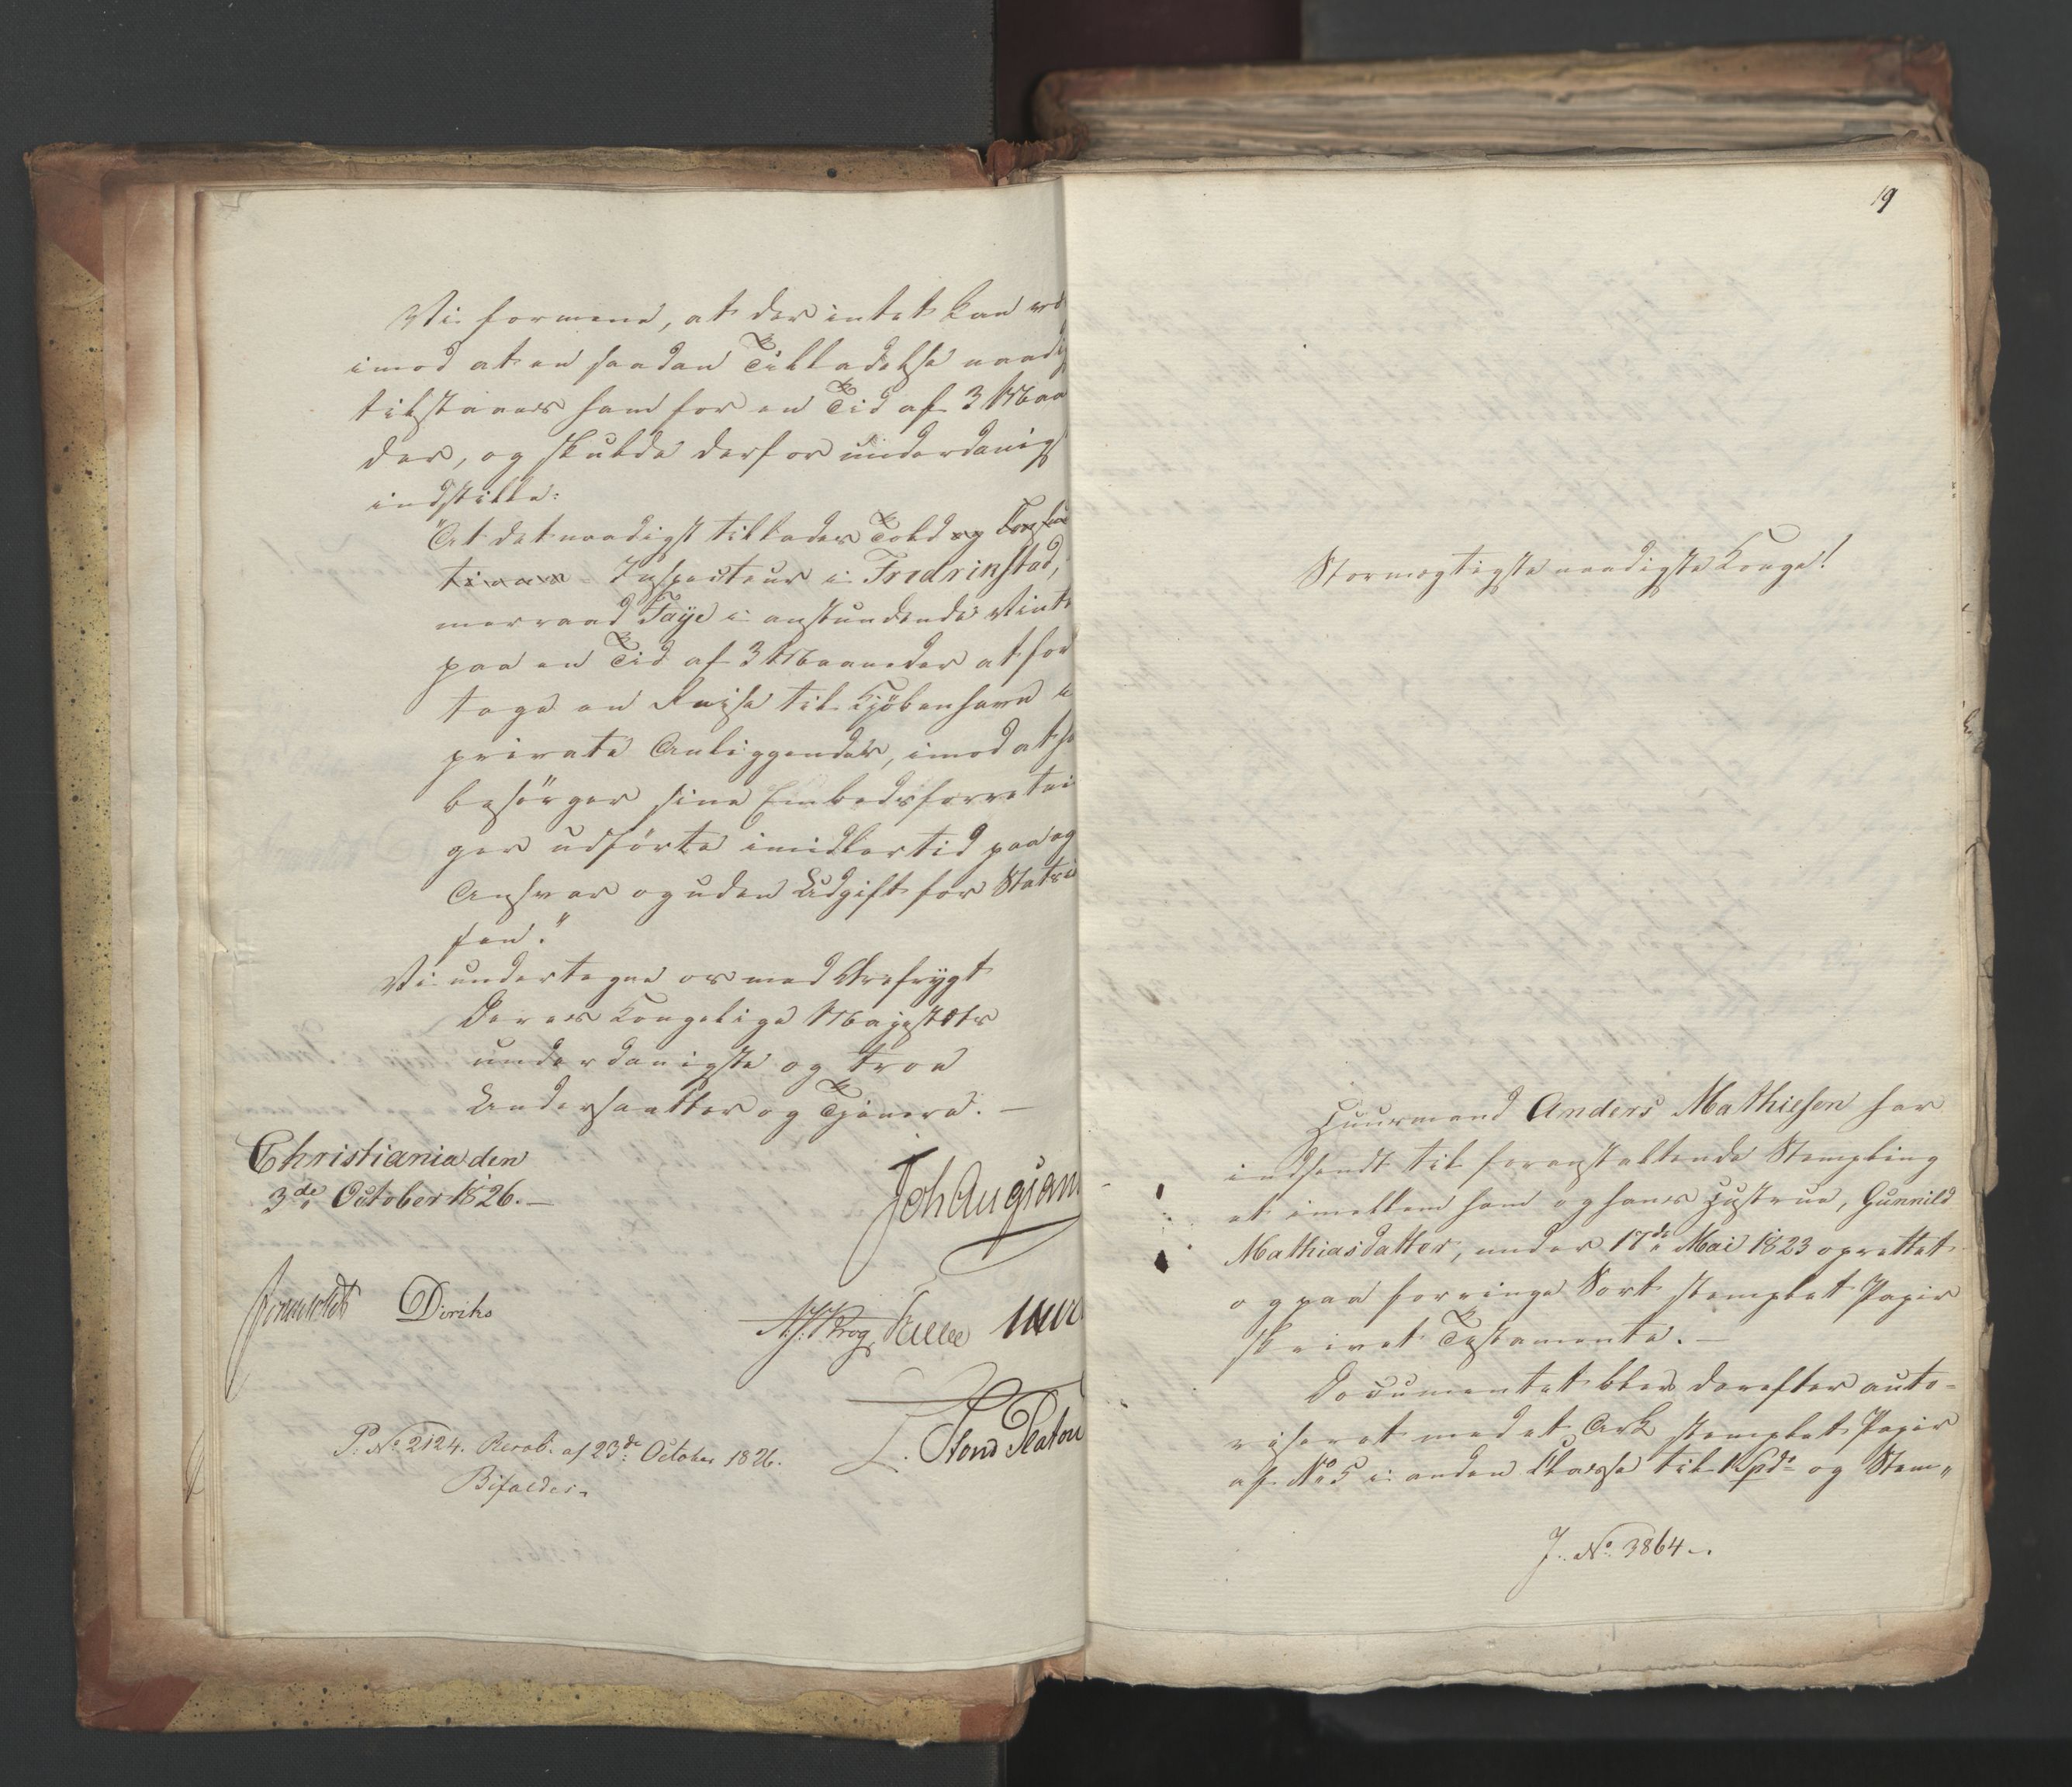 Vi formene, at der intet kan væ
imod at en saadan Tilladelse naadig
tilstaaes ham for en Tid af 3 Maa
der, og skulde derfor underdanigst
indstille:
"At det naadigst tillades Told og Consum
tions Inspecteur i Fredrikstad,
merraad Faÿe i anstundende Vint
paa en Tid af 3 Maaneder at for
tage en Reise til Kjöbenhavn i
private Anliggender, imod at ha
besörger sine Embedsforretni
ger udförte imidlertid paa eg
Ansvar og uden Udgift for Stats
sen."
Vi undertegne os med Ærefrygt
Deres Kongelige Majestæts
underdanigste og troe
Undersaatter og Tjenere. —
Christiania den
3de October 1826. —
Joh Aug Sand
Sommerhielm Diriks
Krog Collett
L. Stoud Platou
P. No 2124. Resol. af 23de October 1826.
Bifaldes.
19
Stormægtigste naadigste Konge!
Huusmand Anders Mathiesen har
indsendt til foranstaltende Stempling
et imellem ham og hans Hustrue, Gunnild
Mathiasdatter, under 17de Mai 1823 oprettet
og paa forringe Sort stemplet Papir
skrevet Testamente. —
Documentet blev derefter auto-
riseret med et Ark stemplet Papir
af No 5 i anden Classe til 1 Spd. og Stem„
J. No 3864.